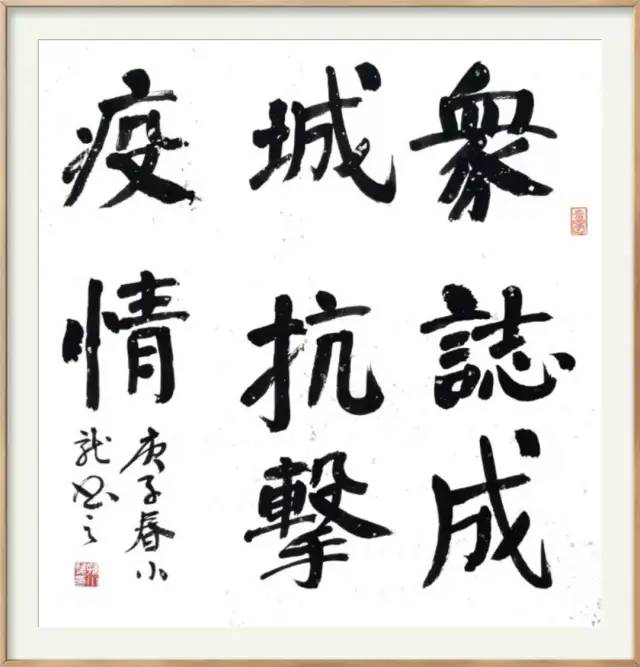 衆誌成
城抗擊
疫情
庚子春小
龍書之